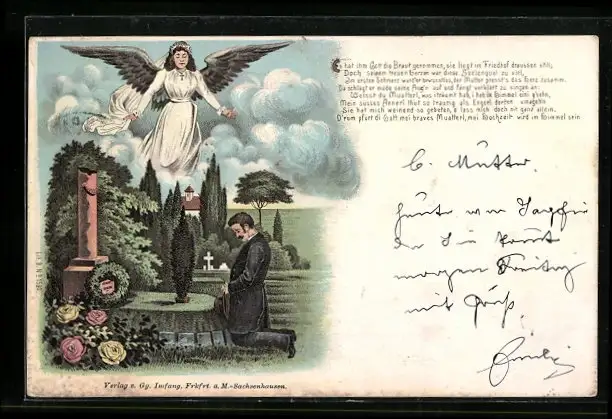 Es hat ihm Gott die Braut genommen, sie liegt im Friedhof draussen still;
Doch seinem treuen Herzen war diese Seelenqual zu viel,
Im ersten Schmerz wurd'er bewusstlos, der Mutter presst's das Herz zusamm.
Da schlägt er müde seine Aug'n auf und fängt verklärt zu singen an:
Weisst du Muatterl, was i träumt hab, i hab in Himmel eini g'sehn,
Mein süsses Annerl that so traurig als Engel dorten umageh'n
Sie hat mich weinend so gebeten, o lass mich doch nit ganz allein.
D'rum pfürt di Gott mei braves Muatterl, mei Hochzeit wird im Himmel sein
L. Mutter.
heute
morgen Freitag
mit Gruß.
Emilie
DESSIN N. 671
Verlag v. Gg. Imfang, Frkfrt. a. M.-Sachsenhausen.